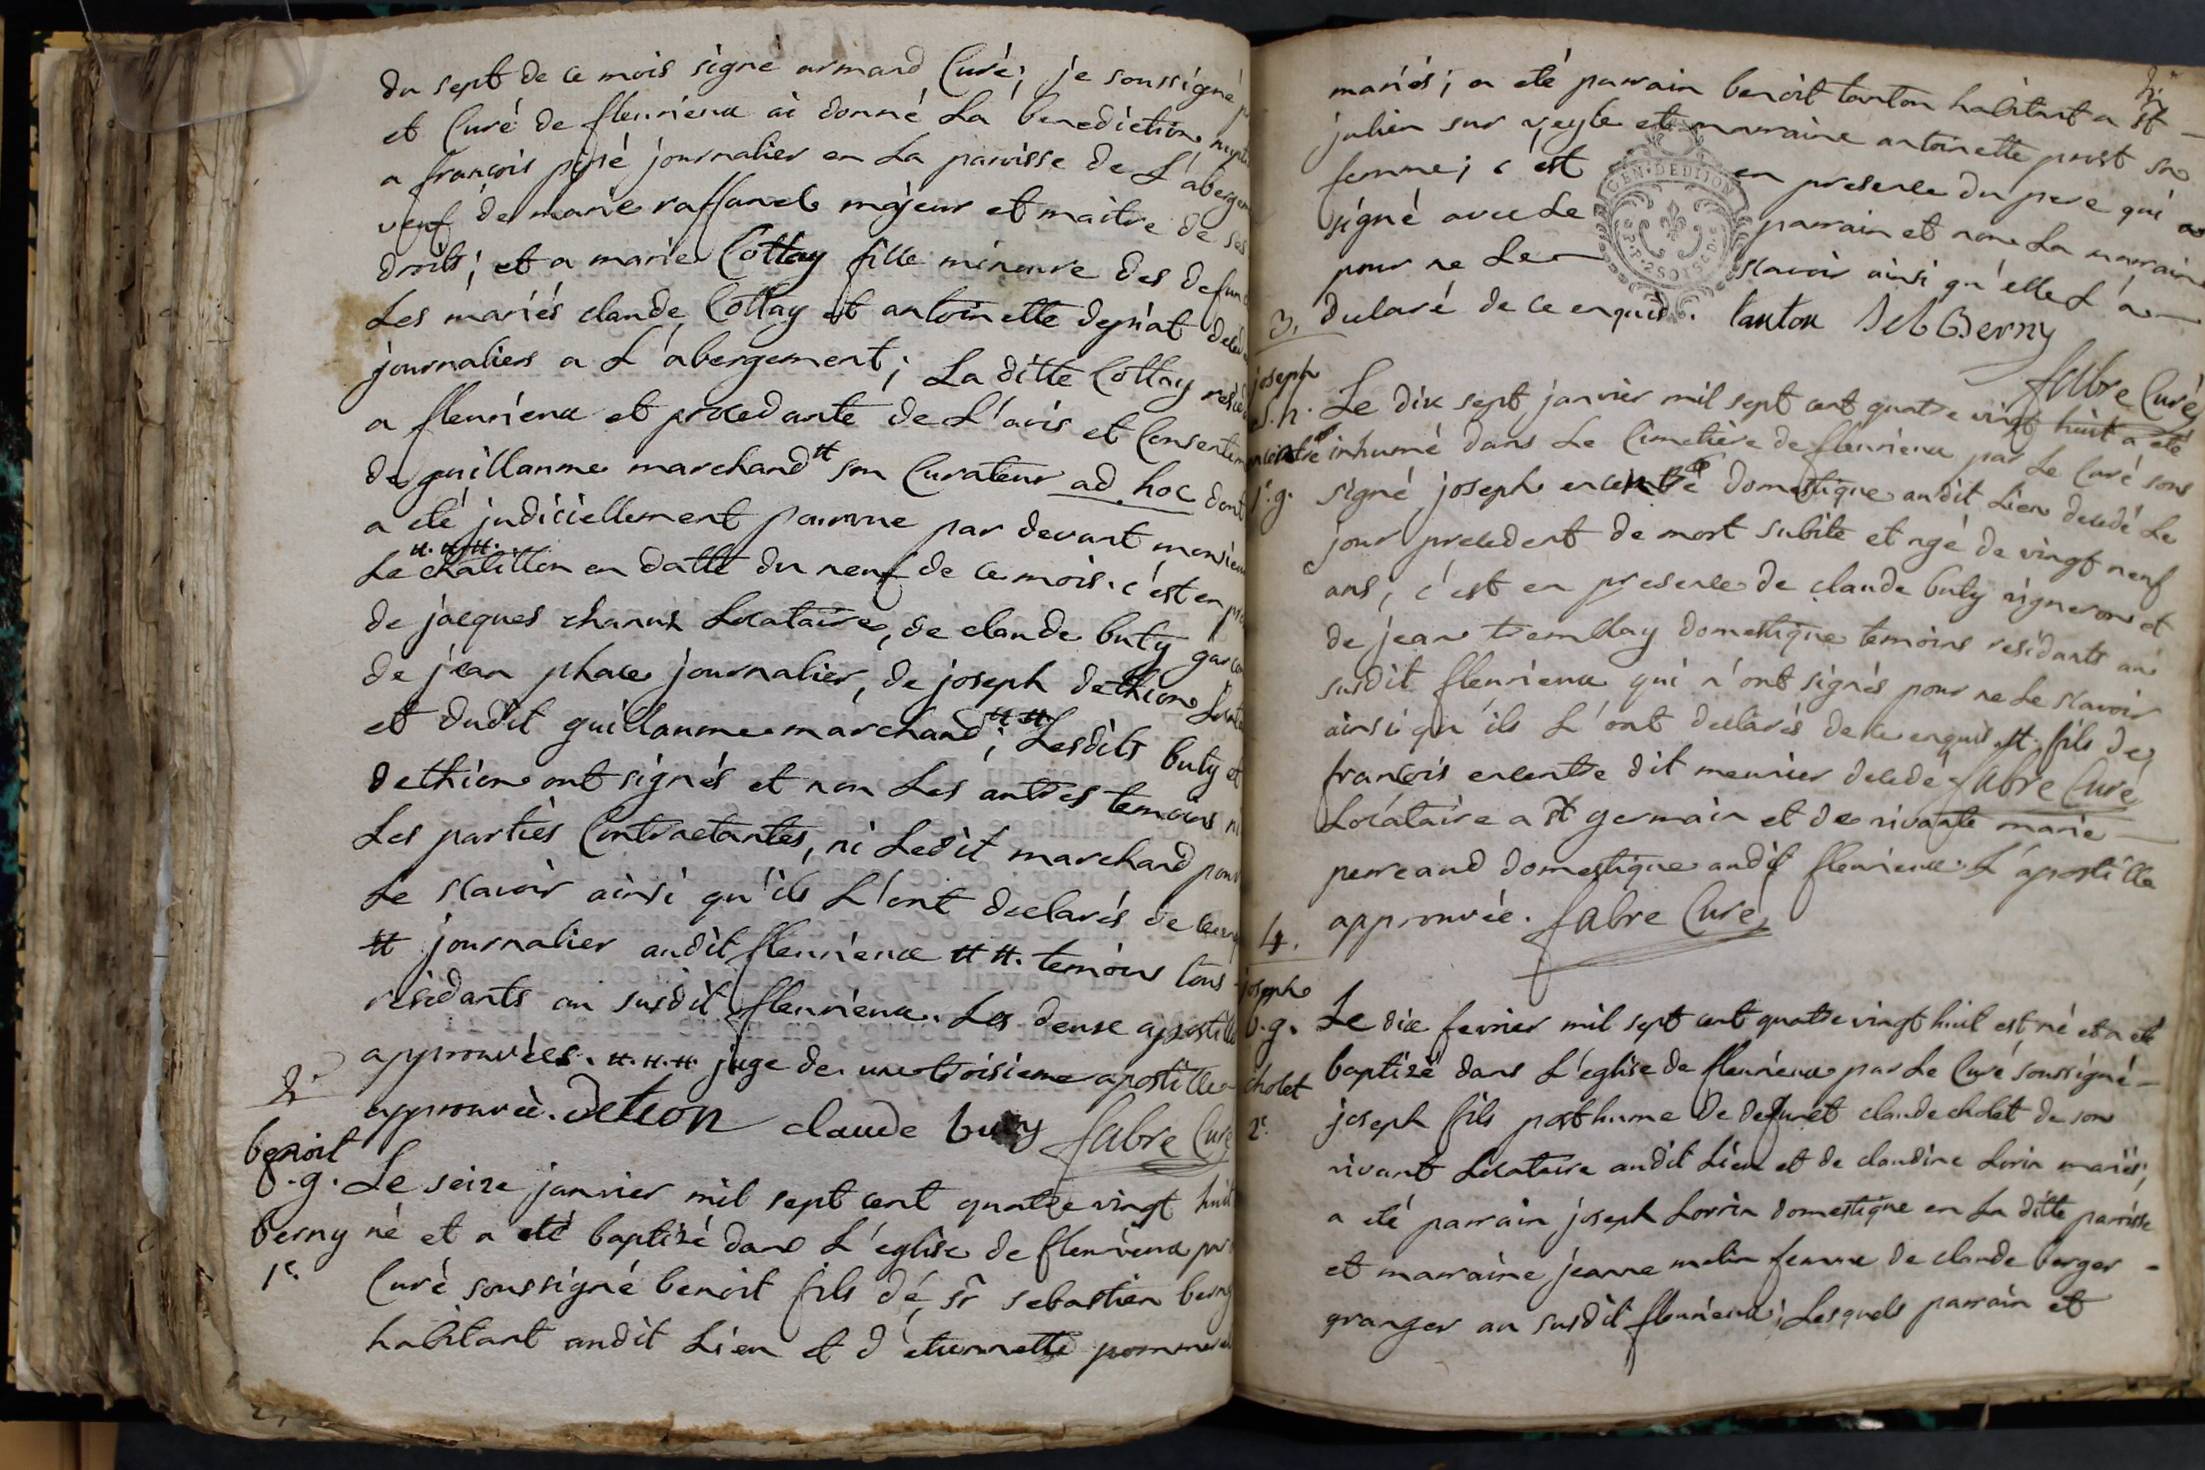 du sept de ce mois signé armand Curé; je soussigné
et Curé de fleurieux ai donné La benediction nupti
a françois pisé journalier en La paroisse de L'abergem
veuf de marie raffanel majeur et maitre de ses
droits; et a marie Cottay fille mineure des defun
Les mariés claude Cottay et antoinette depriat
journaliers a L'abergement; La ditte Cottay resid
a fleurieux et procedante de L'avis et Consentem
de guillaume marchand # son Curateur ad hoc dont
a eté judiciellement pourvue par devant monsieur
#.#.#.
Le chatillon en datte du neuf de ce mois. c'est en pre
de jacques Locataire, de claude buty
de jean phace journalier, de joseph dethion
et dudit guillaume marchand ##; Lesdits buty et
dethion ont signés et non Les autres temoins ni
Les parties Contractantes, ni Ledit marchand pour
Le scavoir ainsi qu'ils L'ont declarés de ce
# journalier audit fleurieux ##. temoins tous
residants au susdit fleurieux. Les deux apostille
approuvées. #.#.# juge de. une troisieme apostille
approuvée. detion claude buty fabre Curé
2.
benoit
b.g.
berny
1e.
Le seize janvier mil sept cent quatre vingt huit
né et a eté baptizé dans L'eglise de fleurieux par
Curé soussigné benoit fils de sr sebastien berny
habitant audit Lieu et d'etiennette
2e
mariés; a eté parrain benoit tonton habitant a st
julien sur veyle et marraine antoinette post sa
femme; c'est en presence du pere qui a
signé avec Le parrain et non La marraine
pour ne Le scavoir ainsi qu'elle L'a
declaré de ce enquis. tonton Berny
fabre Curé
GEN. DE DIJON
3.
joseph
S.h.
encentre
1e.g.
Le dix sept janvier mil sept cent quatre vingt huit a eté
inhumé dans Le Cimetière de fleurieux par Le Curé sous
signé joseph encentre # domestique audit Lieu decedé Le
jour precedent de mort subite et agé de vingt neuf
ans, c'est en presence de claude buty vigneron et
de jean tremblay domestique temoins residants au
susdit fleurieux qui n'ont signés pour ne Le scavoir
ainsi qu'ils L'ont declarés de ce enquis. # fils de
françois encentre dit meunier decedé fabre Curé
Locataire a st germain et de vivante marie
perreaud domestique audit fleurieux. L'apostille
approuvée. fabre Curé
4.
joseph
b.g.
cholet
2e.
Le dix fevrier mil sept cent quatre vingt huit est né et a eté
baptizé dans L'eglise de fleurieux par Le Curé soussigné
joseph fils posthume de defunct claude cholet de son
vivant Locataire audit Lieu et de claudine Lorin mariés;
a eté parrain joseph Lorrin domestique en La ditte paroisse
et marraine jeanne melin femme de claude berger
granger au susdit fleurieux; Lesquels parrain et